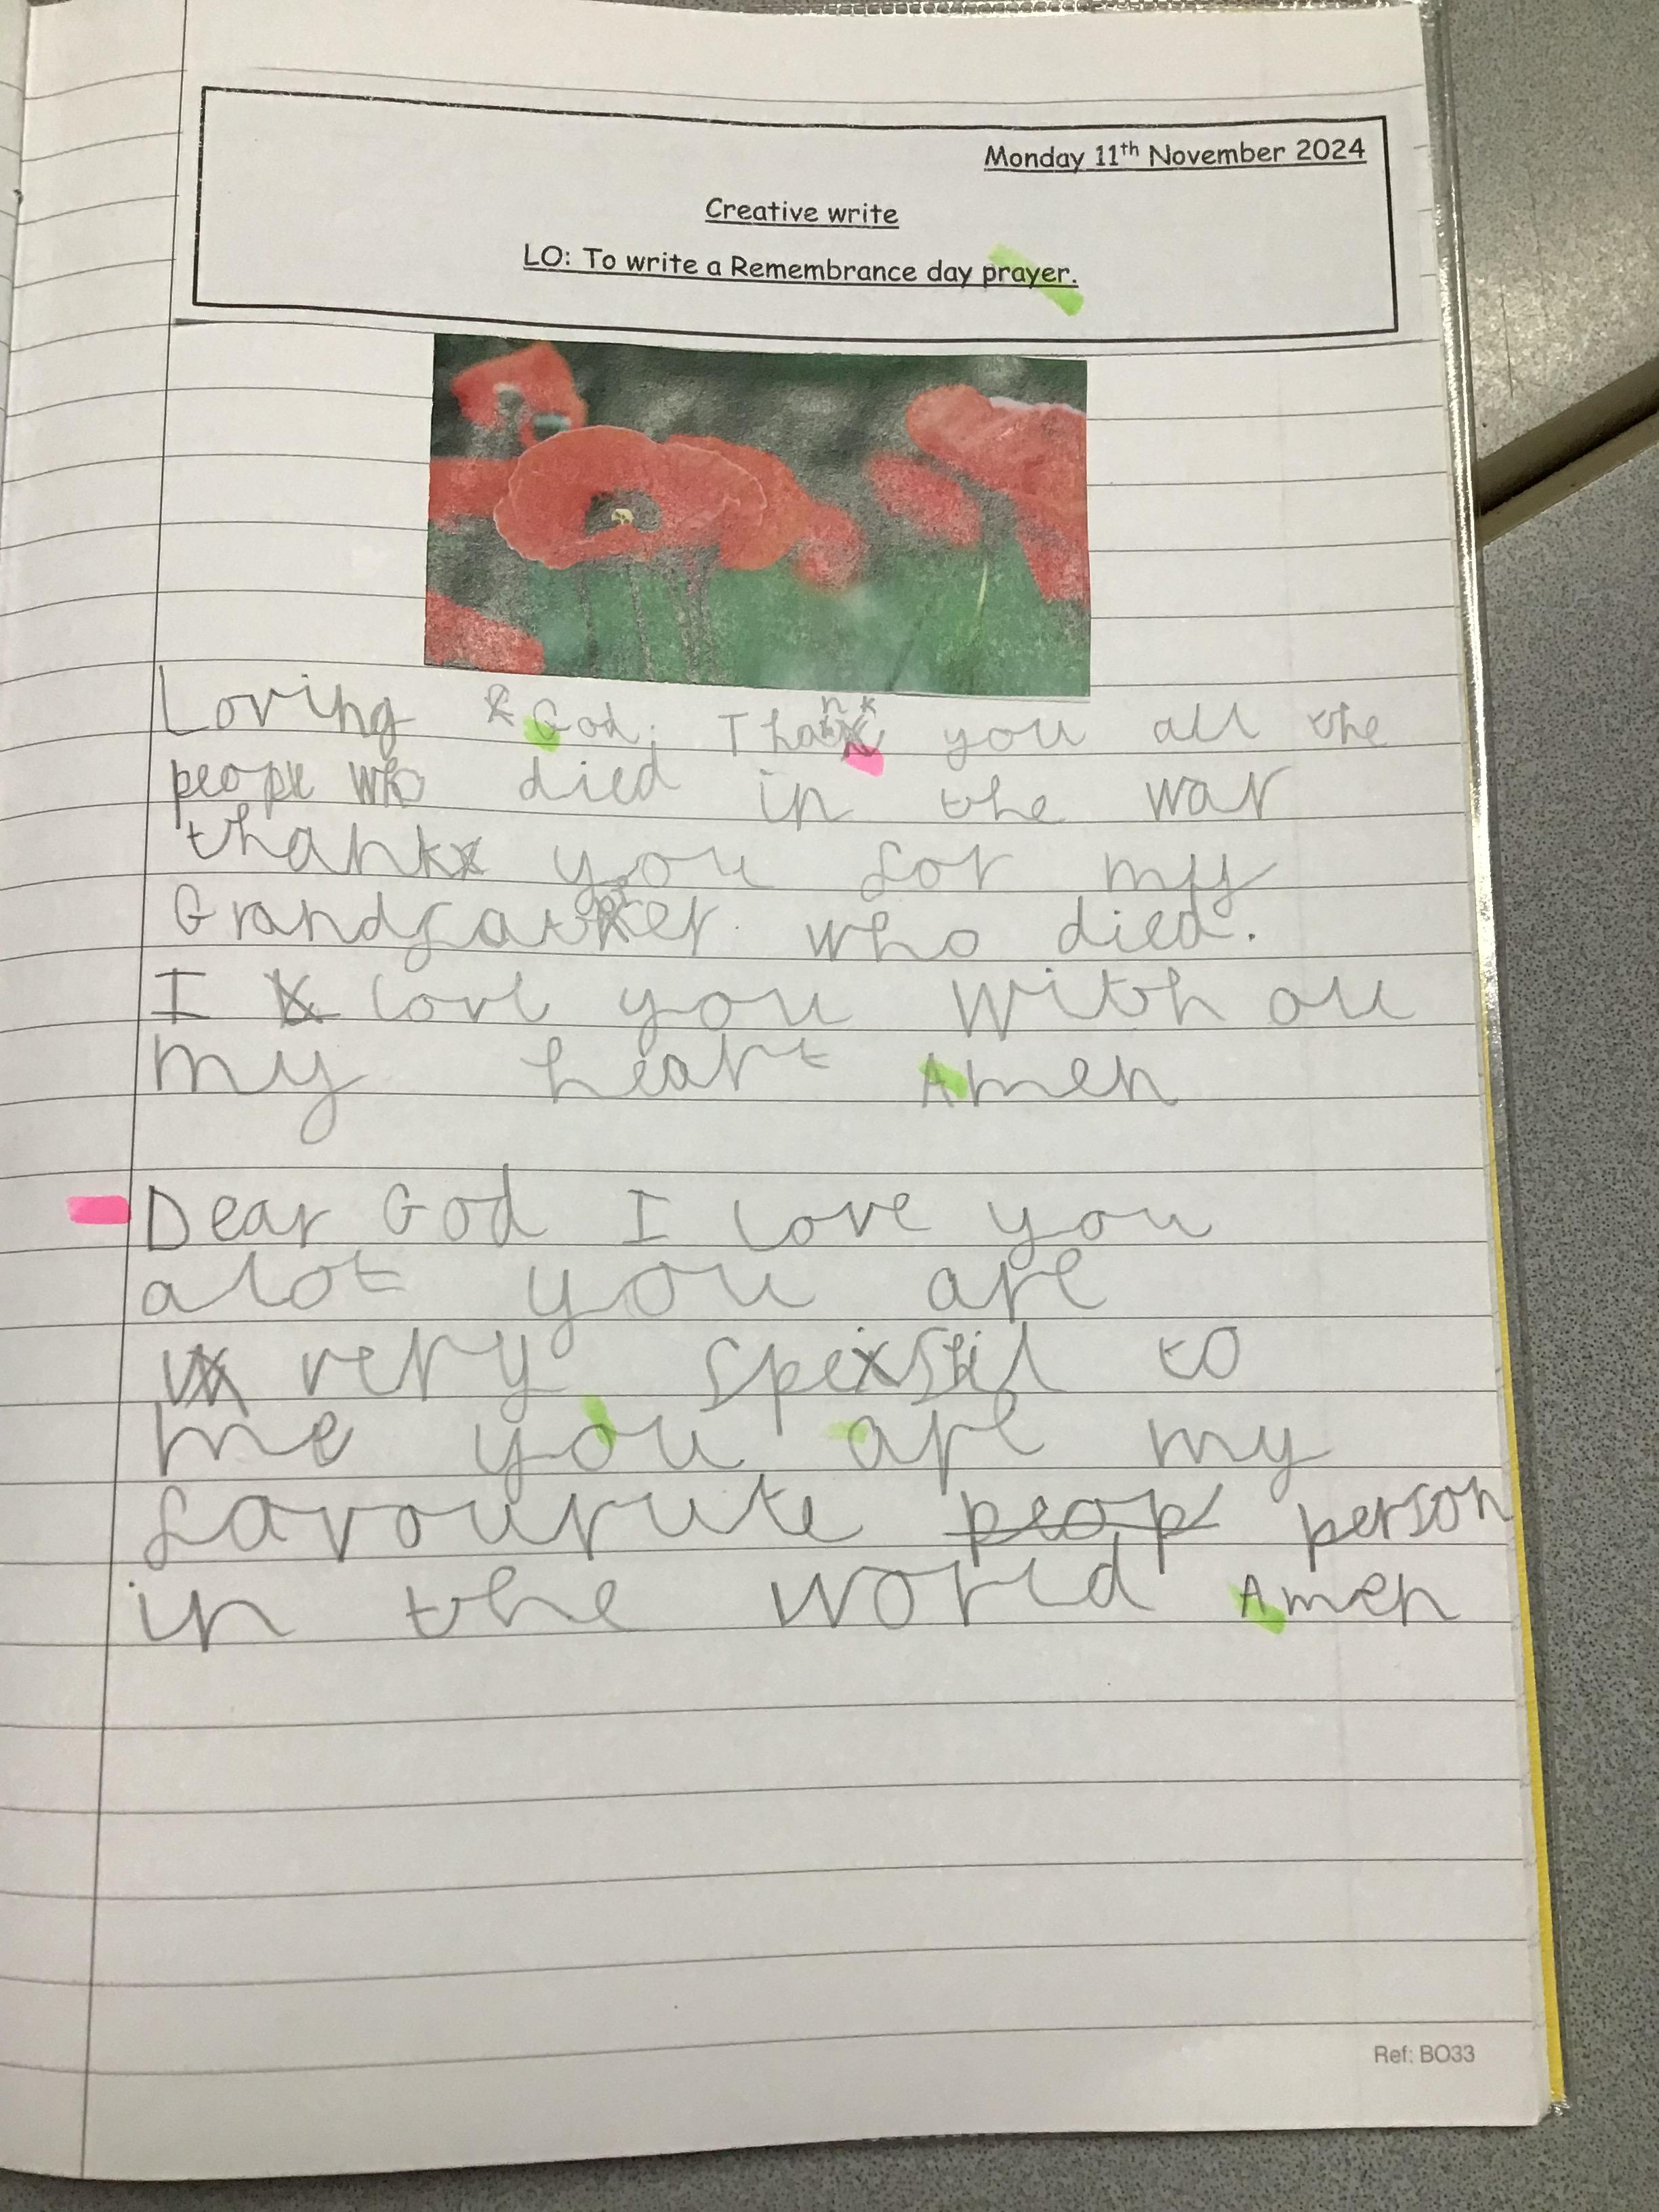 Monday 11th November 2024
Creative write
LO: To write a Remembrance day prayer.
Loving God, Thank you all the
people who died in the war
thank you for my
Grandfather who died.
I love you with all
my heart Amen
Dear God I love you
alot you are
very to
me you are my
favourute peop person
in the world Amen
Ref: BO33